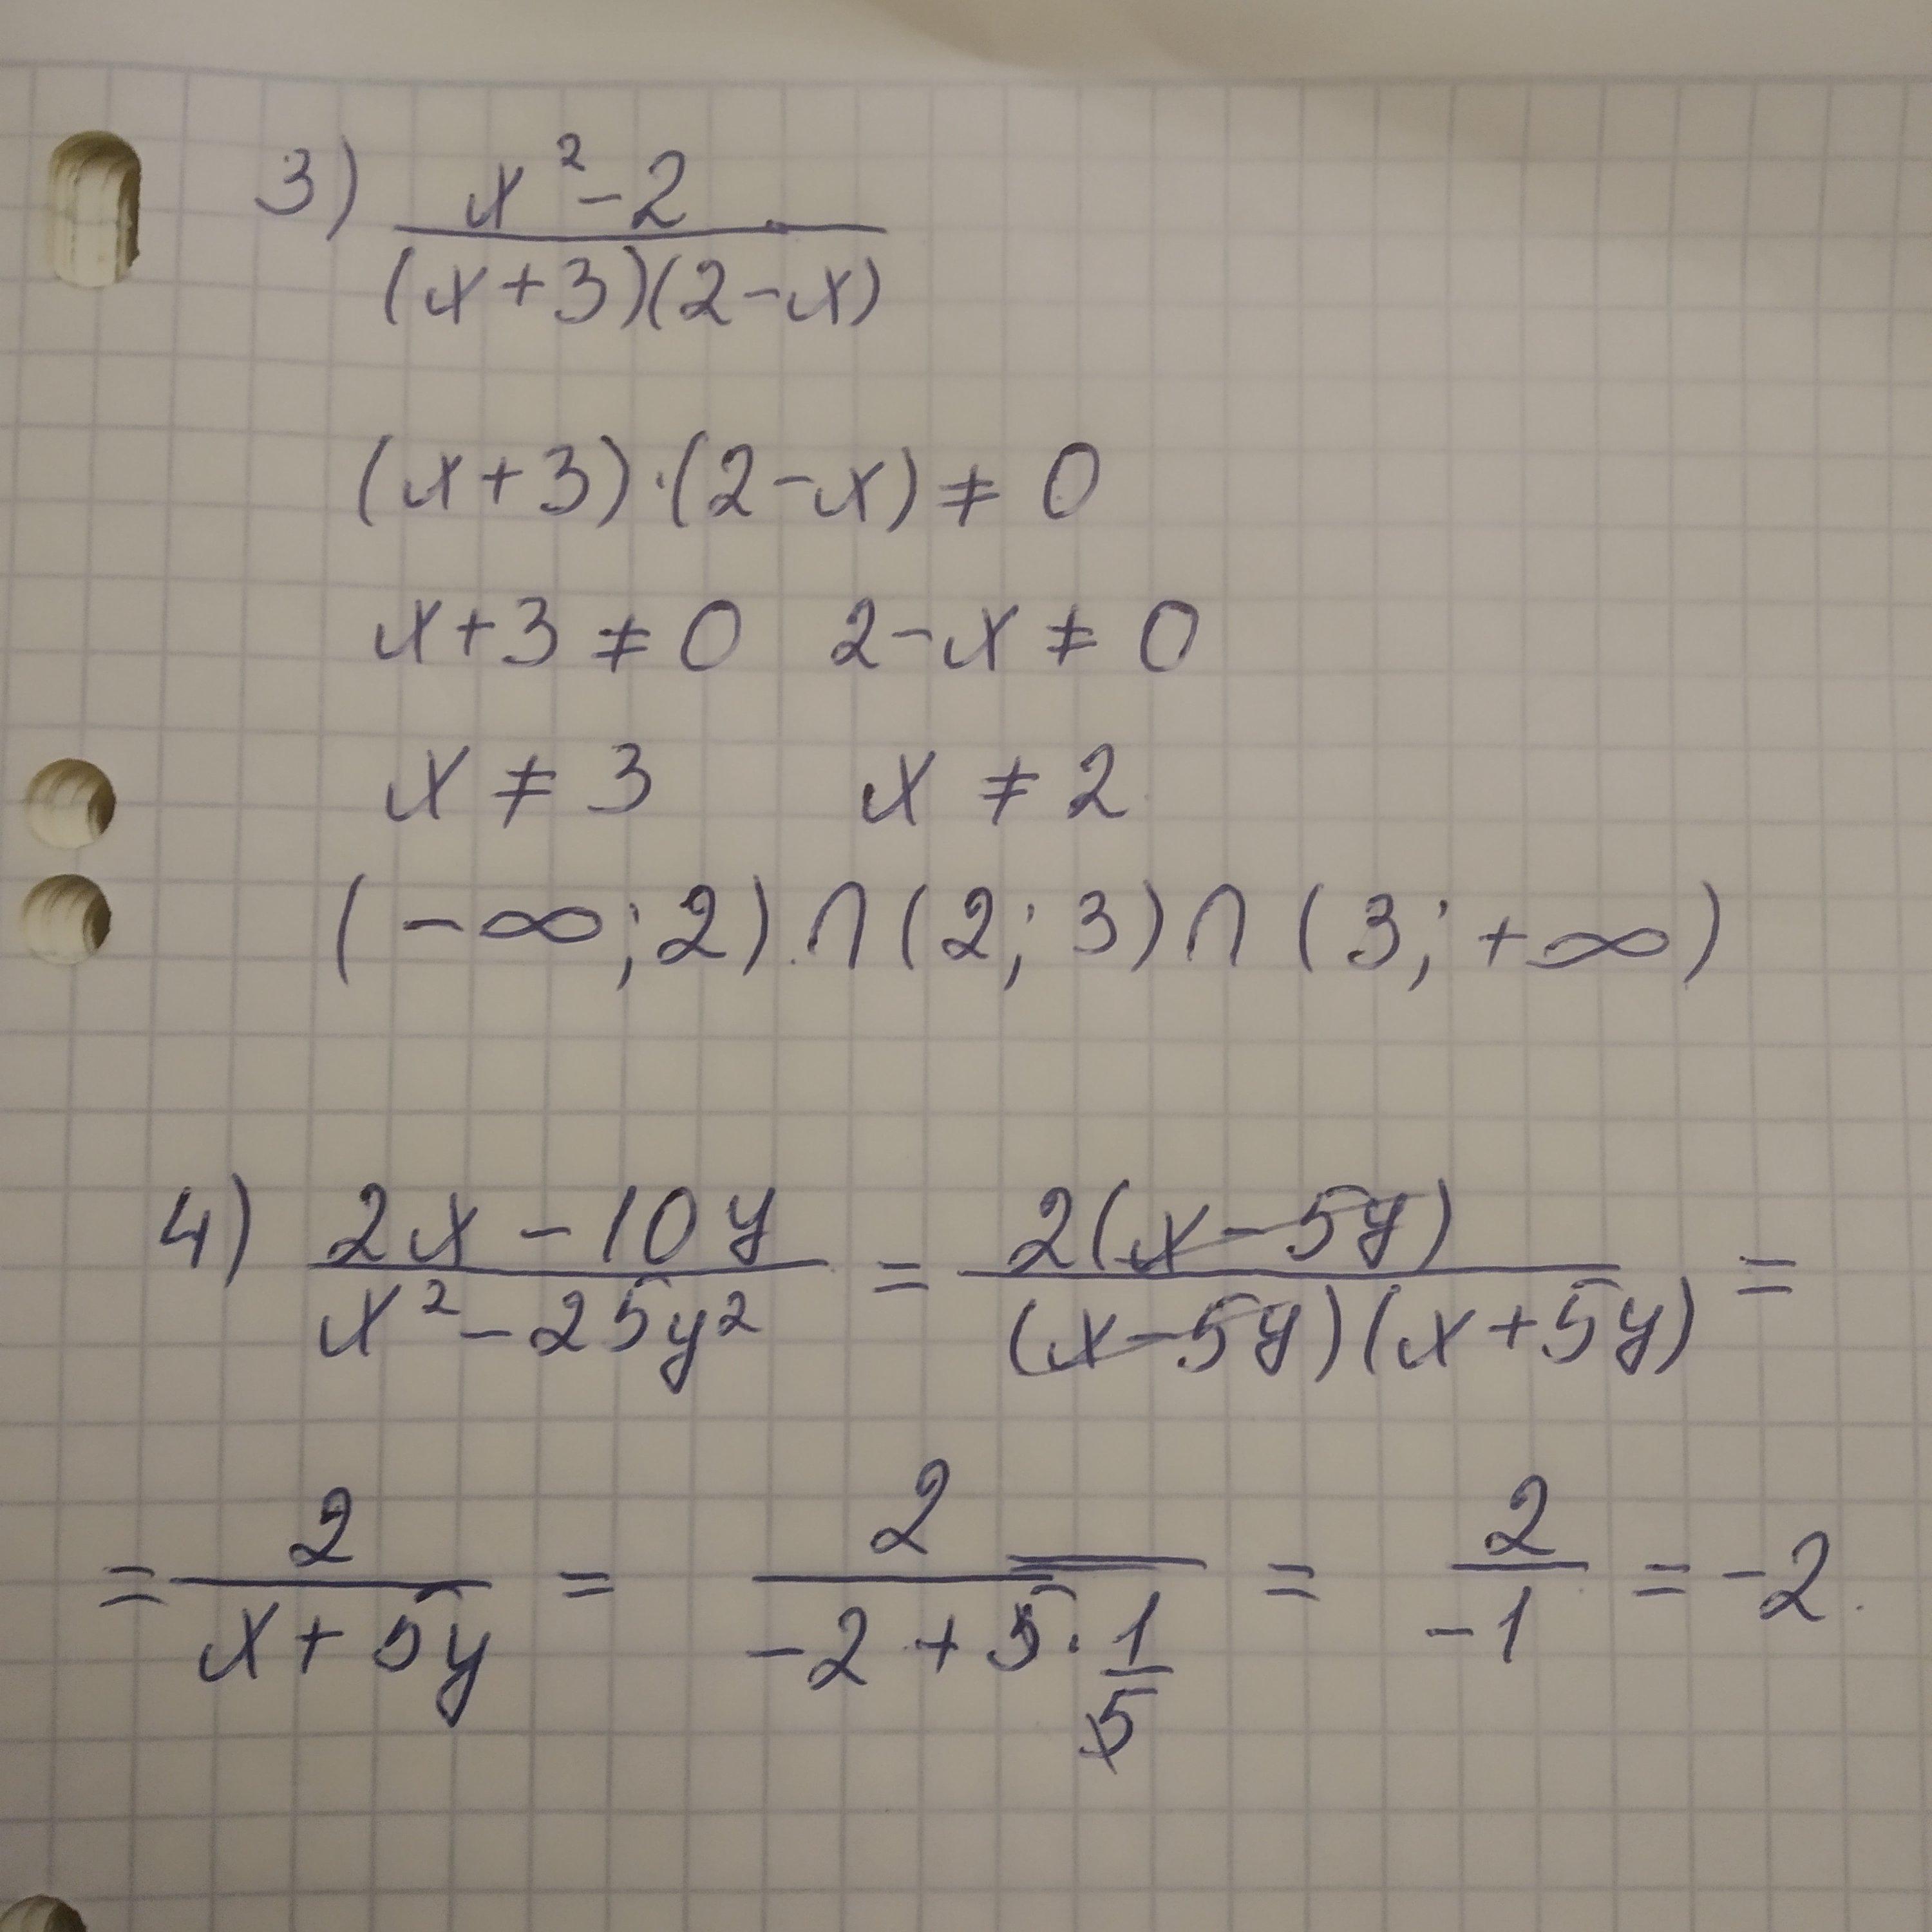 3) (x² - 2)/((x+3)(2-x))
(x+3)·(2-x) ≠ 0
x+3 ≠ 0 2-x ≠ 0
x ≠ 3 x ≠ 2
(-∞; 2) ∩ (2; 3) ∩ (3; +∞)
4) (2x - 10y)/(x² - 25y²) = (2(x-5y))/((x-5y)(x+5y)) =
= 2/(x+5y) = 2/(-2+5·1/5) = 2/-1 = -2.